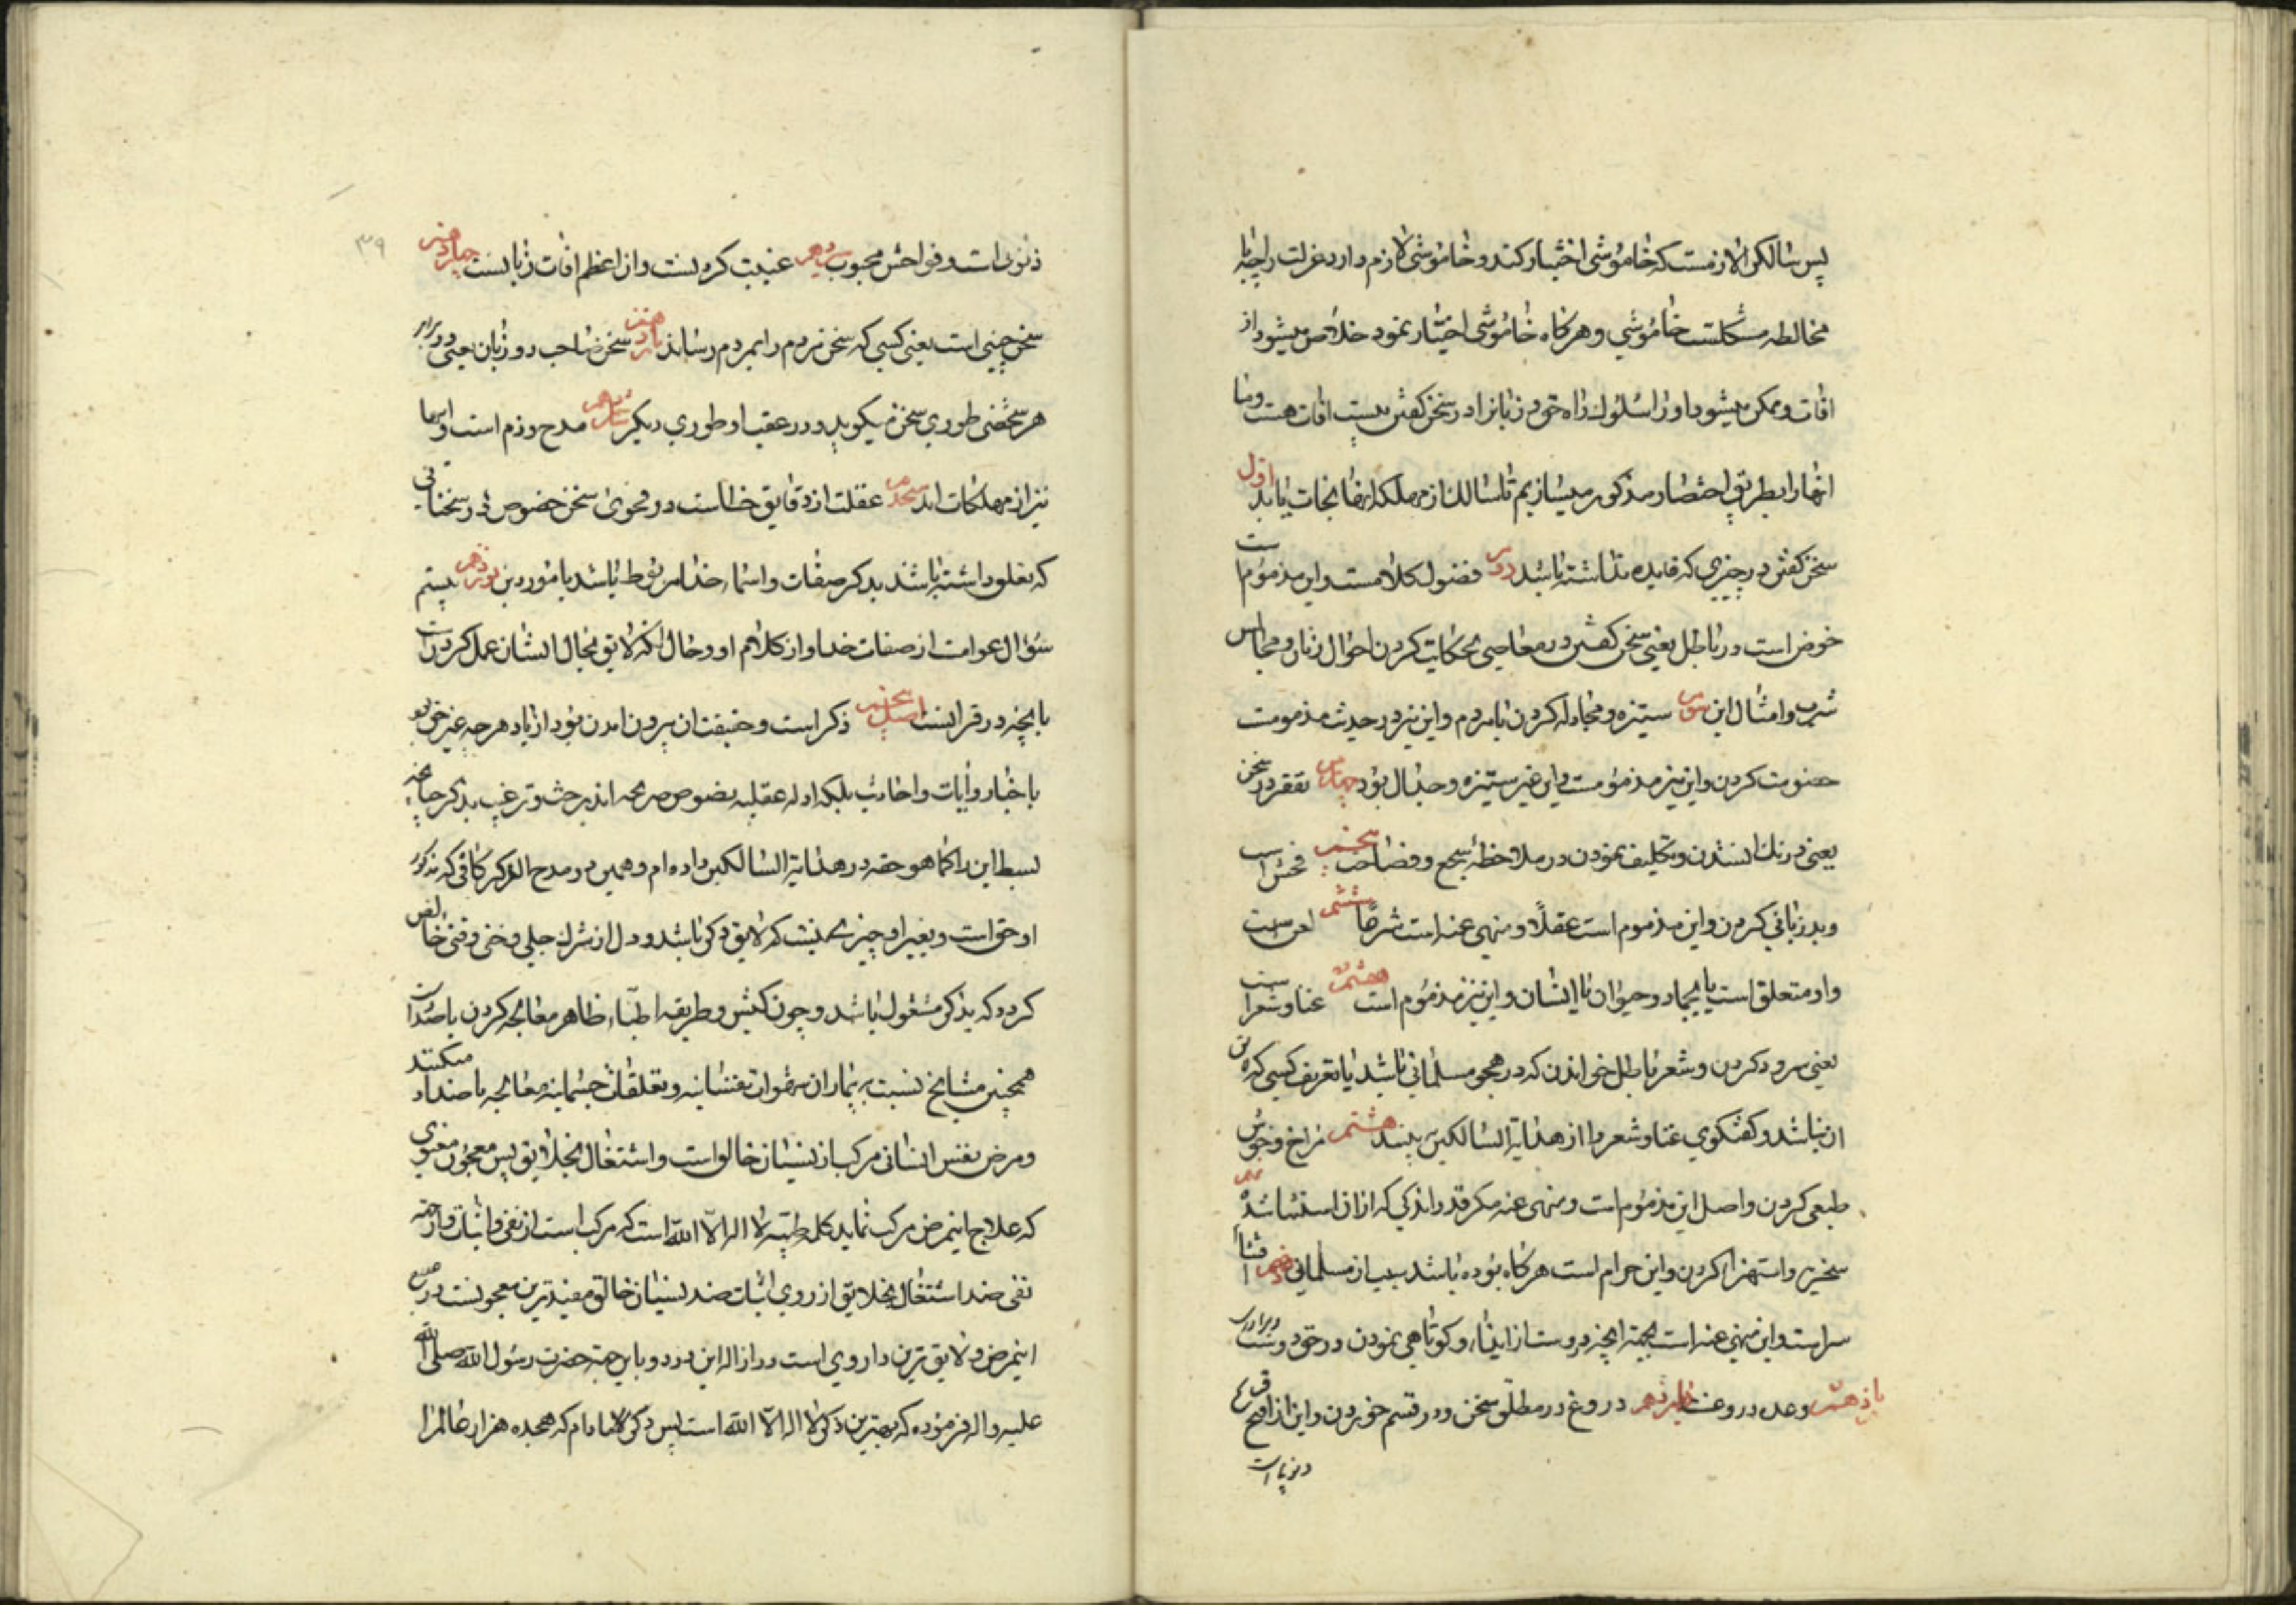 پس سالک را لازمست که خاموشی اختیار کند و خاموشی لازم دارد عزلت را چه با
مخالطه مشکلست خاموشی و هرکاه خاموشی اختیار نمود خلاص میشود از
افات و ممکن میشود او را سلوک راه خود زبانرا در سخن کفتن بیست افات هست و ما
انها را بطریق اختصار مذکور میسازیم تا سالک از مهلکه انها نجات یابد اول
سخن کفتن در چیزی که فایده نداشته باشد دوم فضول کلامست و این مذموم است
خوض است در باطل یعنی سخن کفتن در معاصی حکایت کردن احوال زنان و مجالس
شرب و امثال این ستیزه و مجادله کردن با مردم و این نیز در حدیث مذمومست
خصومت کردن و این نیز مذمومست و این غیر ستیزه و جدال بود تقعر در سخن
یعنی درنک و تکلیف نمودن در ملاحظهٔ سجع و فصاحت فحش است
و بدزبانی کردن و این مذموم است عقلاً و منهی عنه است شرعاً ششم لعن است
و او متعلق است یا بجماد و حیوان یا انسان و این نیز مذموم است غنا و شعر است
یعنی سرود کردن و شعر باطل خواندن که در هجو مسلمانی باشد یا تعریف کسی که
ان نباشد و کفتکوی غنا و شعر را از هدایة السالکین هشتم مزاح و خوش
طبعی کردن و اصل این مذموم است و منهی عنه مکر قدر اندکی که از ان استثنا شده
سخریه و استهزا کردن و این حرام است هرکاه بوده باشد از مسلمانی دهم افشاء
سر است و این منهی عنه است بجهة انچه دروست از ایذاء و کوتاهی نمودن در حق دوست و برادر
یازدهم وعده دروغست دروغ در مطلق سخن و در قسم خوردن و این از اقبح
ذنوبات
۳۹
ذنوبست و فواحش عیوب سیزدهم غیبت کردنست و ان اعظم افات زبانست چهاردهم
سخن چینی است یعنی کسی که سخن مردم را بمردم رساند سخن صاحب دو زبان یعنی در برابر
هر شخصی طوری سخن میکوید و در عقب او طوری دیکر مدح و ذم است و اینها
نیز از مهلکات اند غفلت از دقایق خطاست در فحوی سخن خصوص در سخنانی
که تعلق داشته باشند بذکر صفات و اسماء خدا مربوط باشد بامور دین بیستم
سؤال عوامست از صفات خدا و از کلام او و حال انکه لایق بحال ایشان عمل کردن است
بانچه در قرانست اصل پنجم ذکر است و حقیقت ان بیرون امدن بود از یاد هر چه غیر حق بود
باخبار و ایات و احادیث بلکه ادله عقلیه نصوص صریحه اند بر حث و ترغیب بذکر چنانچه
بسط این را کما هو حقه در هدایة السالکین داده ام و همین در مدح الذکر کافی که مذکور
او حق است و بغیر او چیزی نیست که لایق ذکر باشد و دل از شرک جلی و خفی وقتی خالص
کردد که بذکر مشغول باشد و چون کیش و طریقه اطباء ظاهر معالجه کردن باضداد است
همچنین مشایخ نسبت به بیماران شهوات نفسانیه و تعلقات جسمانیه معالجه باضداد میکنند
و مرض نفس انسانی مرکب از نسیان خالق است و اشتغال بخلایق پس معجون معنوی
که علاج اینمرض مرکب نماید کلمه طیبه لا اله الا الله است که مرکب است از نفی و اثبات و از جهة
نفی ضد اشتغال بخلایق از روی اثبات ضد نسیان خالق مفیدترین معجونست
اینمرض و لایق ترین داروی است در ازاله این درد و باین جهة حضرت رسول الله صلی الله
علیه و اله فرموده که بهترین ذکر لا اله الا الله است پس ذکر که هجده هزار عالم را